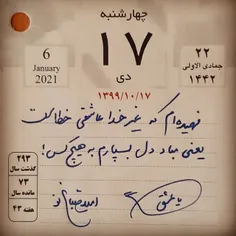 چهارشنبه
6
January
2021
۱۷
دی
۲۲
جمادی الاولی
۱۴۴۲
۱۳۹۹/۱۰/۱۷
فهمیده‌ام که غیر خدا عاشقی خطاست
یعنی مباد دل بسپارم به هیچ کس!
۲۹۳
گذشت سال
۷۳
مانده سال
هفته ۴۳
یا عشق